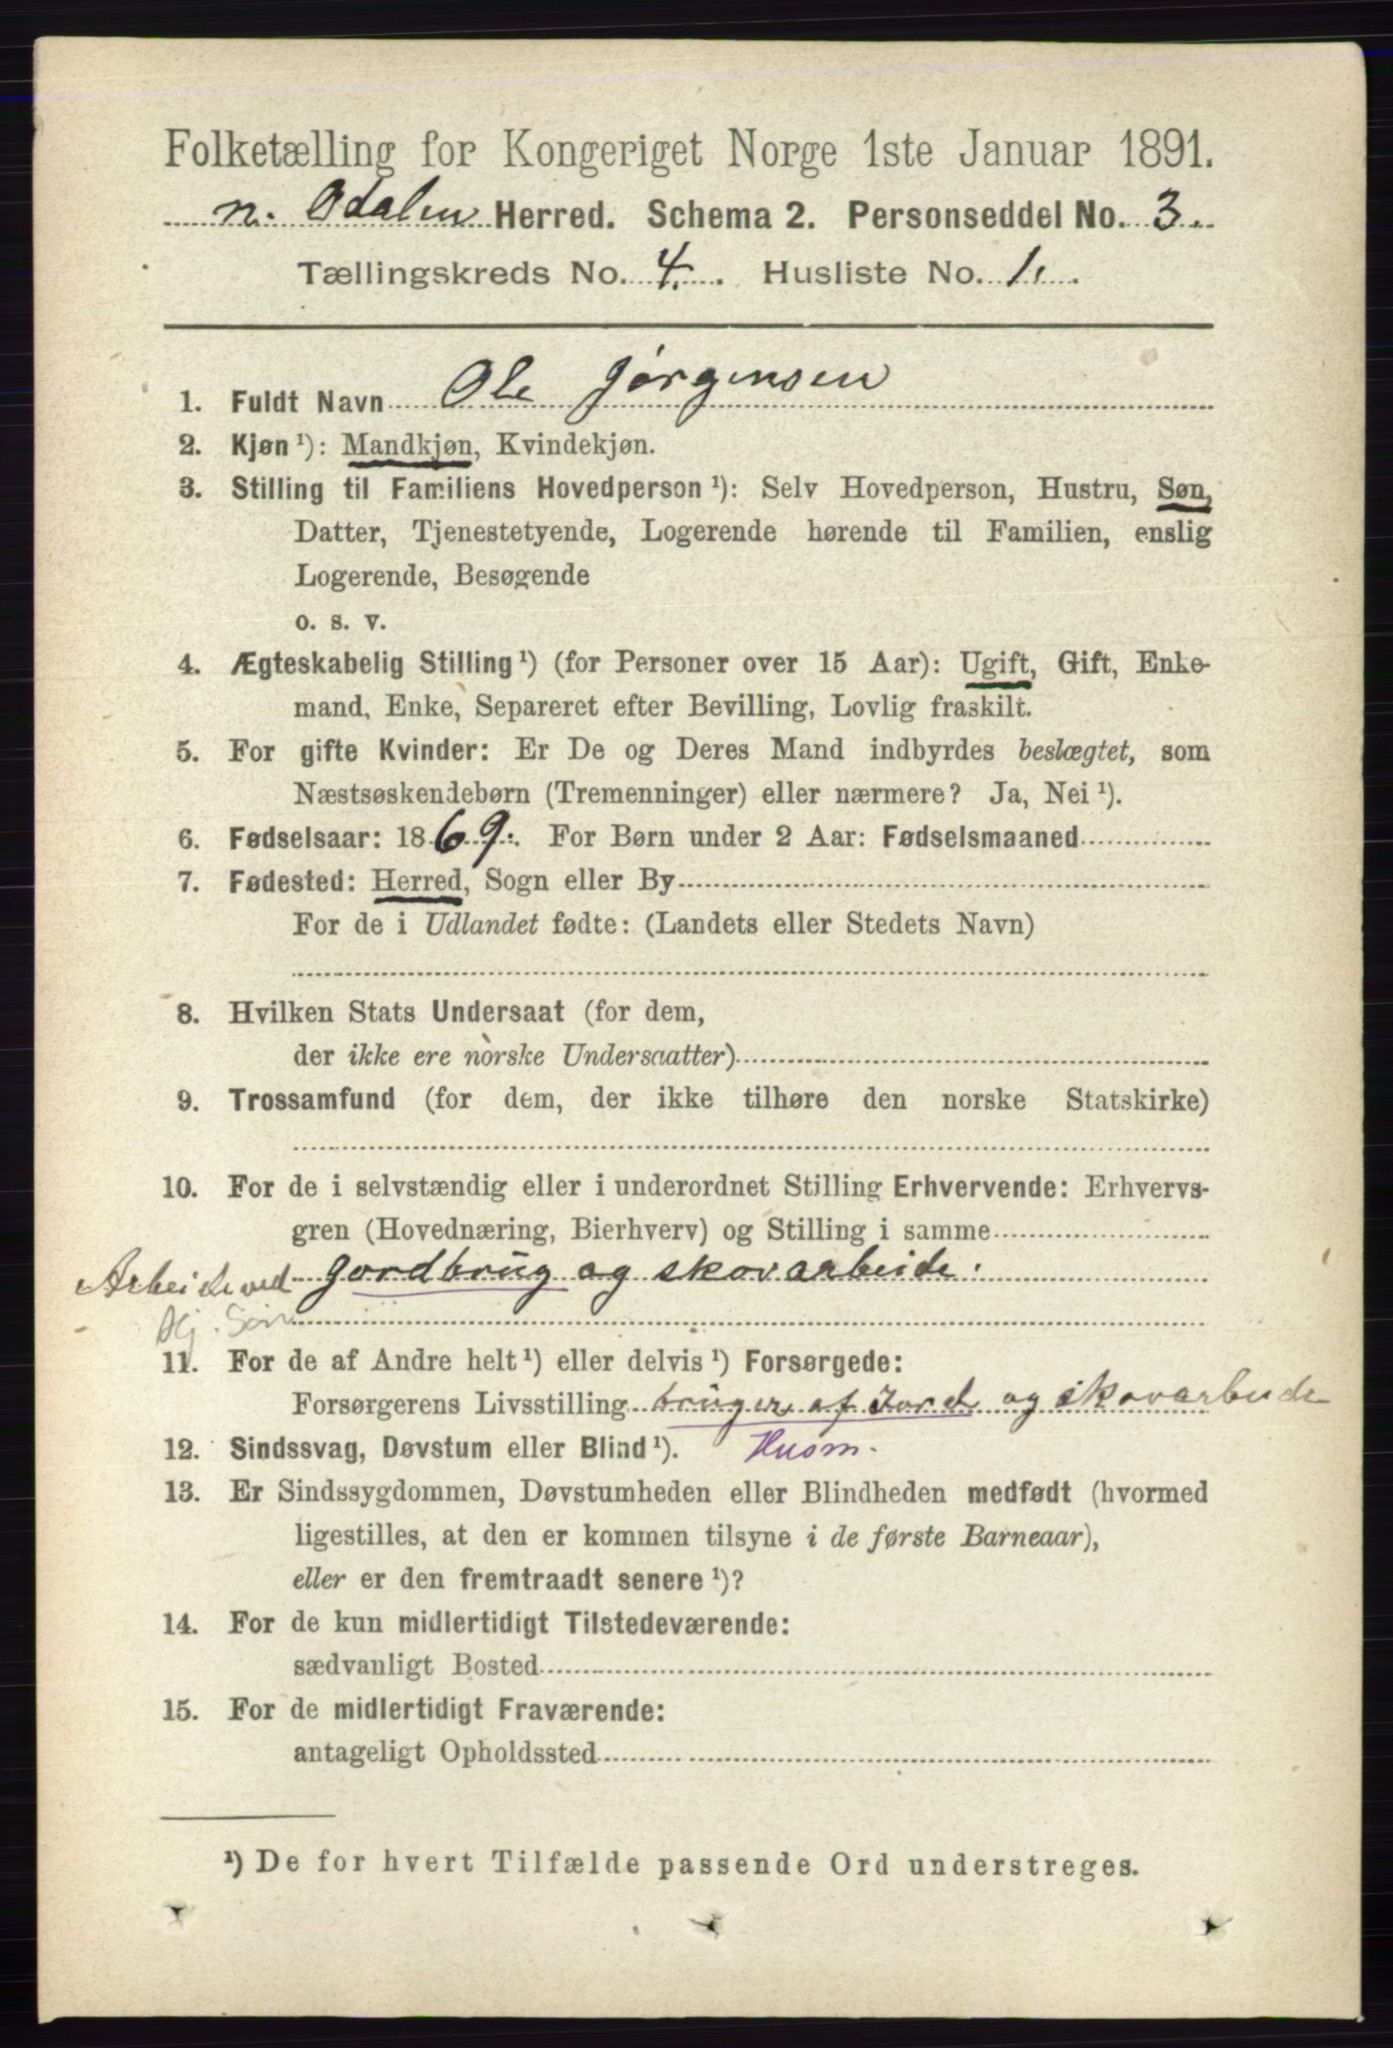 Folketælling for Kongeriget Norge 1ste Januar 1891.
n. Odalen Herred. Schema 2. Personseddel No. 3.
Tællingskreds No. 4. Husliste No. 1.
1. Fuldt Navn Ole Jørgensen
2. Kjøn ¹): Mandkjøn, Kvindekjøn.
3. Stilling til Familiens Hovedperson ¹): Selv Hovedperson, Hustru, Søn,
Datter, Tjenestetyende, Logerende hørende til Familien, enslig
Logerende, Besøgende
o. s. v.
4. Ægteskabelig Stilling ¹) (for Personer over 15 Aar): Ugift, Gift, Enke-
mand, Enke, Separeret efter Bevilling, Lovlig fraskilt.
5. For gifte Kvinder: Er De og Deres Mand indbyrdes beslægtet, som
Næstsøskendebørn (Tremenninger) eller nærmere? Ja, Nei ¹).
6. Fødselsaar: 1869. For Børn under 2 Aar: Fødselsmaaned
7. Fødested: Herred, Sogn eller By
For de i Udlandet fødte: (Landets eller Stedets Navn)
8. Hvilken Stats Undersaat (for dem,
der ikke ere norske Undersaatter)
9. Trossamfund (for dem, der ikke tilhøre den norske Statskirke)
10. For de i selvstændig eller i underordnet Stilling Erhvervende: Erhvervs-
gren (Hovednæring, Bierhverv) og Stilling i samme
Arbeide ved Jordbrug og skovarbeide.
Hj. Søn
11. For de af Andre helt ¹) eller delvis ¹) Forsørgede:
Forsørgerens Livsstilling bruger af Jord og skovarbeide
12. Sindssvag, Døvstum eller Blind ¹). Husm.
13. Er Sindssygdommen, Døvstumheden eller Blindheden medfødt (hvormed
ligestilles, at den er kommen tilsyne i de første Barneaar),
eller er den fremtraadt senere ¹)?
14. For de kun midlertidigt Tilstedeværende:
sædvanligt Bosted
15. For de midlertidigt Fraværende:
antageligt Opholdssted
¹) De for hvert Tilfælde passende Ord understreges.